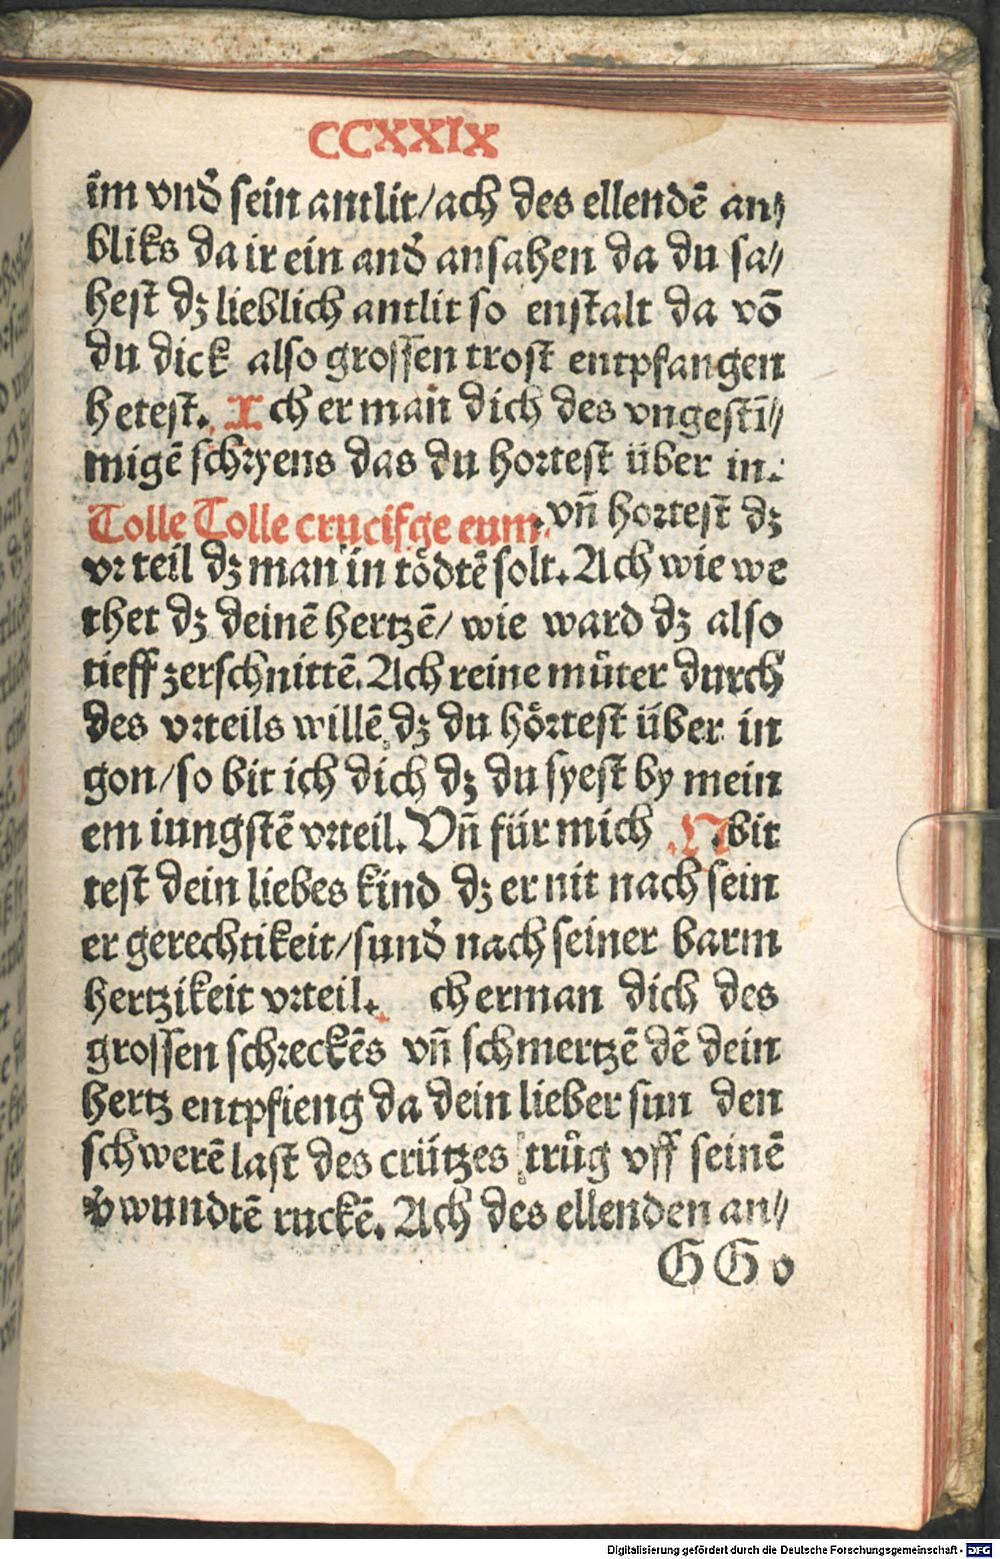 CCXXIX
im̄ vnd̕ sein antlit/ach des ellendē an⸗
bliks da ir ein and̕ ansahen da du sa⸗
hest dꝫ lieblich antlit so enstalt da vō
du dick also grossen trost entpfangen
hetest. I ch er man̄ dich des vngestī⸗
migē schryens das du hortest über in.
Tolle Tolle crucifge eum. vn̄ hortest dꝫ
vꝛteil dꝫ man in tödtē solt. Ach wie we
thet dꝫ deinē hertzē/ wie ward dꝫ also
tieff zerschnittē. Ach reine můter durch
des vꝛteils willē dꝫ du hörtest über in
gon/so bit ich dich dꝫ du syest by mein
em iungstē vꝛteil. Vn̄ für mich N bit
test dein liebes kind dꝫ er nit nach sein
er gerechtikeit/sund̕ nach seiner barm
hertzikeit vꝛteil. ch erman dich des
grossen schꝛeckēs vn̄ schmertzē dē dein
hertz entpfieng da dein lieber sun den
schwerē last des crützes trůg vff seinē
v̕wundtē ruckē. Ach des ellenden an⸗
GG v
Digitalisierung gefördert durch die Deutsche Forschungsgemeinschaft - DFG